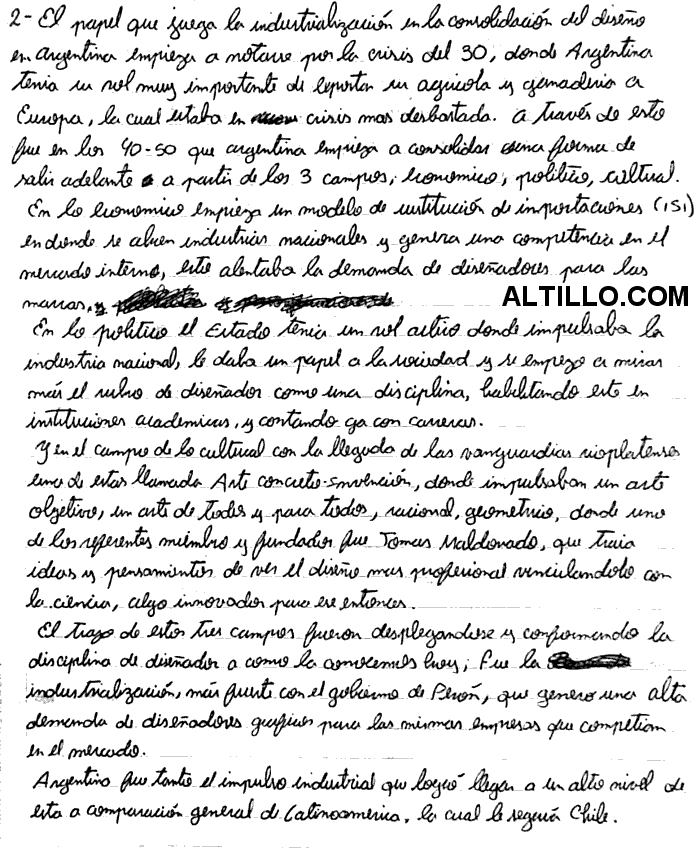 2- El papel que juega la industrialización en la consolidación del diseño
en argentina empieza a notarse por la crisis del 30, donde Argentina
tenia un rol muy importante de exportar su agricola y ganaderia a
Europa, la cual estaba en crisis mas desbastada. a través de esto
fue en los 40-50 que argentina empieza a consolidar una forma de
salir adelante a partir de los 3 campos; economico, politico, cultural.
En lo economico empieza un modelo de sustitución de importaciones (ISI)
en donde se abren industrias nacionales y genera una competencia en el
mercado interno, esto alentaba la demanda de diseñadores para las
marcas,
ALTILLO.COM
En lo politico el Estado tenia un rol activo donde impulsaba la
industria nacional, le daba un papel a la sociedad y se empezo a mirar
más el rubro de diseñador como una disciplina, habilitando esto en
instituciones academicas, y contando ya con carreras.
Y en el campo de lo cultural con la llegada de las vanguardias rioplatenses
una de estas llamada Arte concreto-invención, donde impulsaban un arte
objetivo, un arte de todos y para todos, racional, geometrico, donde uno
de los referentes miembro y fundador fue Tomas Maldonado, que traia
ideas y pensamientos de ver el diseño mas profesional vinculandolo con
la ciencia, algo innovador para ese entonces.
El trazo de estos tres campos fueron desplegandose y conformando la
disciplina de diseñador a como la conocemos hoy; Fue la
industrialización, más fuerte con el gobierno de Perón, que genero una alta
demanda de diseñadores graficos para las mismas empresas que competian
en el mercado.
Argentina fue tanto el impulso industrial que logró llegar a un alto nivel de
esta a comparación general de Latinoamerica, la cual le seguía Chile.